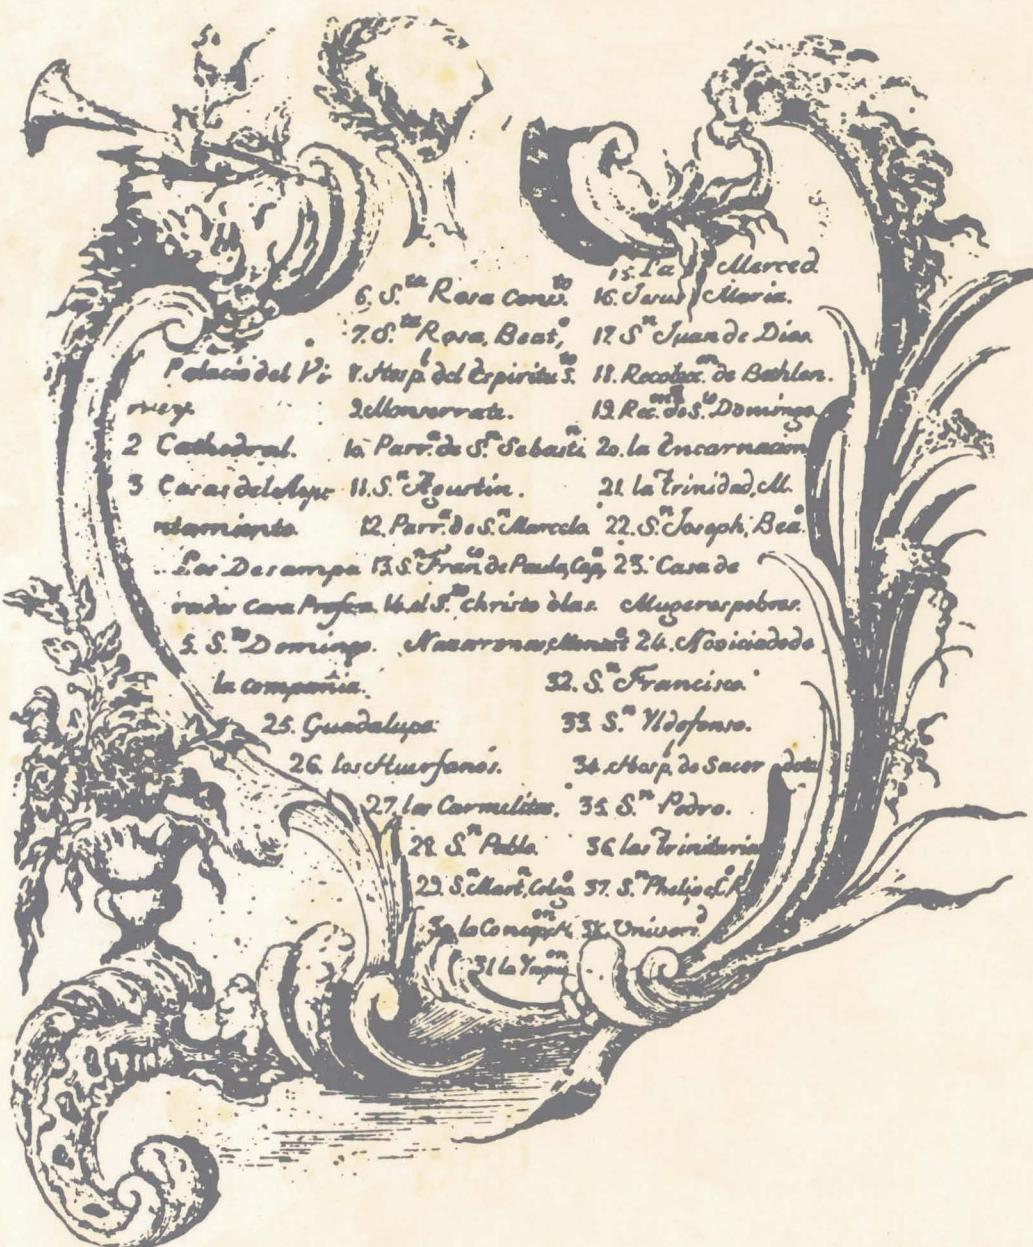 Palacio del Vi
rrey.
2 Cathedral.
3 Casas del Ayu
ntamiento
Los Desampa
rados Casa Profesa.
5. S.to Domingo.
6. S.ta Rosa Conv.to
7. S.ta Rosa, Beat.o
8. Hosp.l del Espiritu S.to
9. Monserrate.
10. Parr.a de S.n Sebasti.n
11. S.n Agustin.
12. Parr.a de S.n Marcelo
13. S.n Fran.co de Paula, Cap.a
14. el S.to Christo dlas
Nazarenas, Monast.o
15. La Merced
16. Jesus Maria.
17. S.n Juan de Dios
18. Recolec.on de Bethlen.
19. Rec.on de S.to Domingo
20. la Encarnacion
21. la Trinidad, M.
22. S.n Joseph, Bea.o
23. Casa de
Mugeres pobres.
24. Noviciado de
la compañia.
25. Guadalupe
26. los Huerfanos.
27. las Carmelitas.
28. S.n Pablo.
29. S.n Mart.n, Coleg.o
30. la Concep.on, M.
31. la Ynqui.on
32. S.n Francisco
33. S.n Yldefonso.
34. Hosp.l de Sacerdotes
35. S.n Pedro.
36. las Trinitarias
37. S.n Phelipe, C. R.l
38. Univers.d